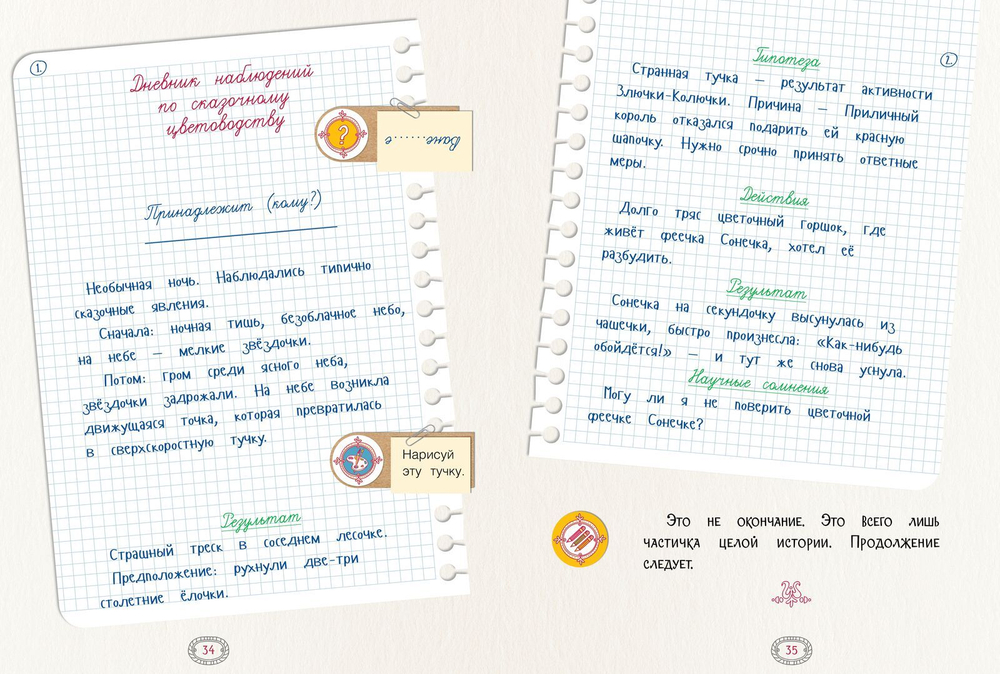 1.
Дневник наблюдений
по сказочному
цветоводству
?
Принадлежит (кому?)
Необычная ночь. Наблюдались типично
сказочные явления.
Сначала: ночная тишь, безоблачное небо,
на небе — мелкие звёздочки.
Потом: гром среди ясного неба,
звёздочки задрожали. На небе возникла
движущаяся точка, которая превратилась
в сверхскоростную тучку.
Нарисуй
эту тучку.
Результат
Страшный треск в соседнем лесочке.
Предположение: рухнули две-три
столетние ёлочки.
34
2.
Гипотеза
Странная тучка — результат активности
Злючки-Колючки. Причина — Приличный
король отказался подарить ей красную
шапочку. Нужно срочно принять ответные
меры.
Действия
Долго тряс цветочный горшок, где
живёт феечка Сонечка, хотел её
разбудить.
Результат
Сонечка на секундочку высунулась из
чашечки, быстро произнесла: «Как-нибудь
обойдётся!» — и тут же снова уснула.
Научные сомнения
Могу ли я не поверить цветочной
феечке Сонечке?
Это не окончание. Это всего лишь
частичка целой истории. Продолжение
следует.
35